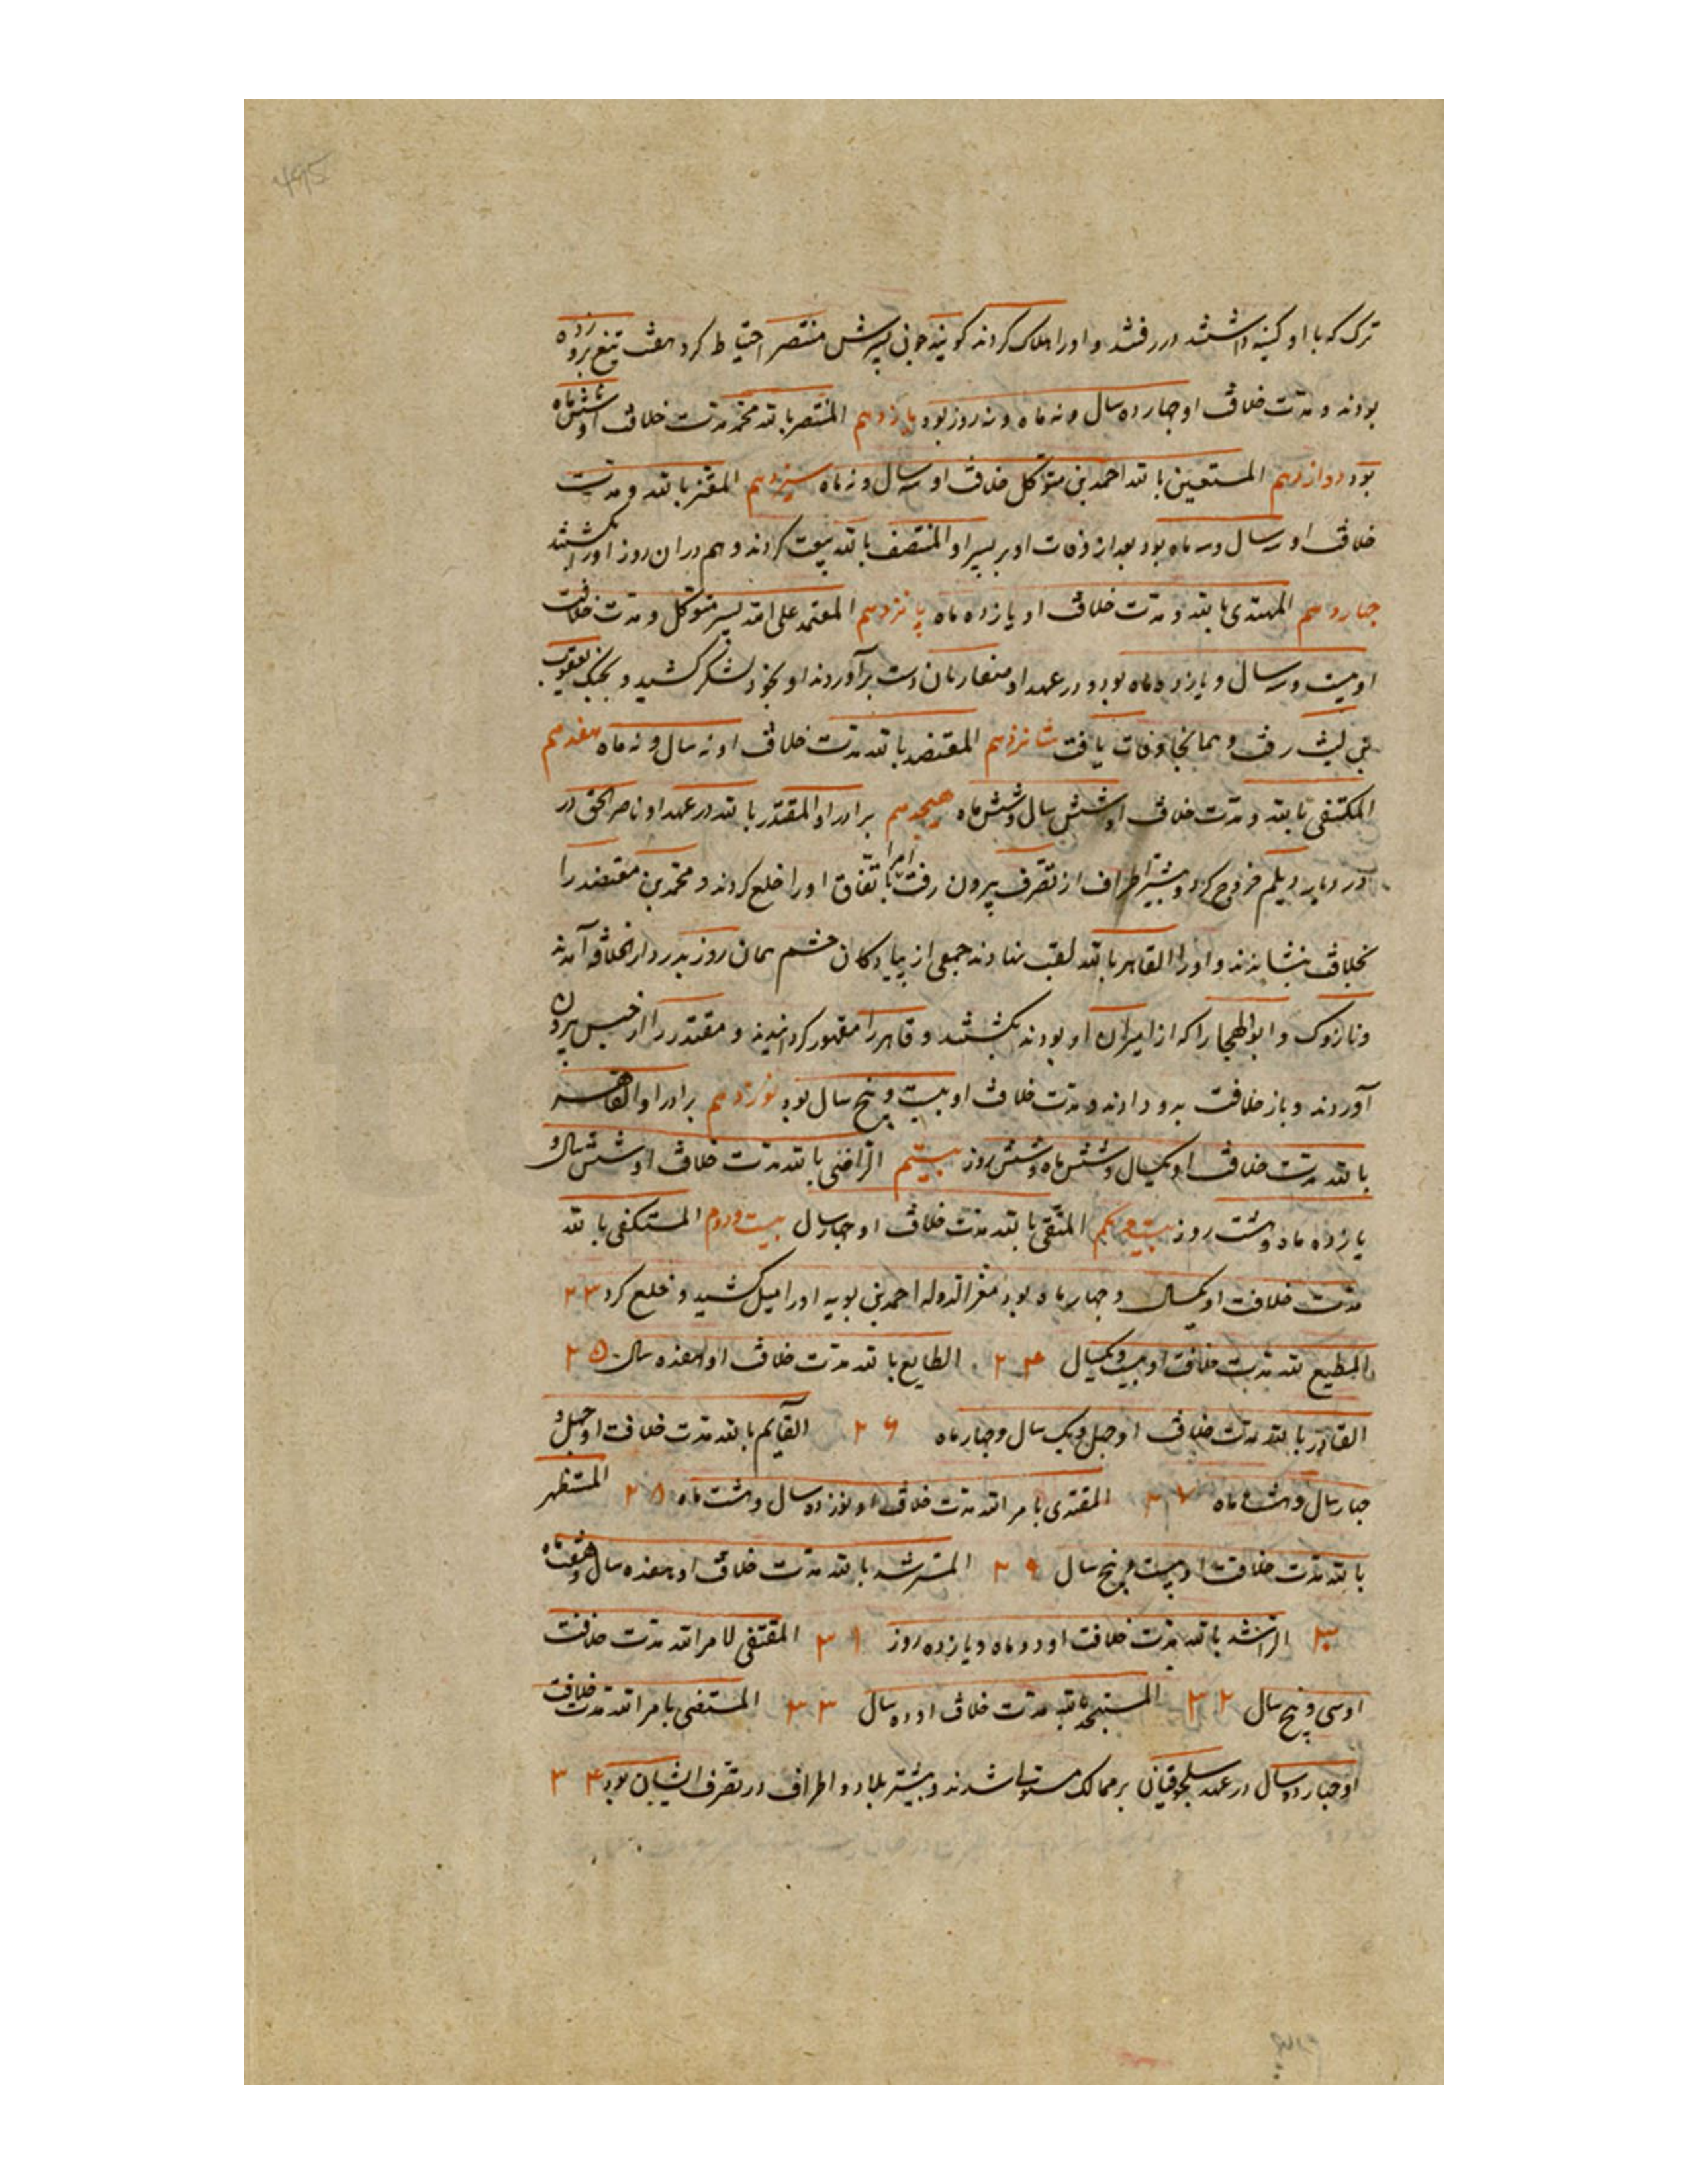 495
ترک که با او کینه داشتند در رفتند و او را هلاک کردند گویند چون پسرش منتصر احتیاط کرد هفت تیغ برو زده
بودند و مدت خلافت او چهارده سال و نه ماه و نه روز بود یازدهم المنتصر بالله محمد مدت خلافت او شش ماه
بود دوازدهم المستعین بالله احمد بن متوکل خلافت او سه سال و نه ماه سیزدهم المعتز بالله و مدت
خلافت او سه سال و سه ماه بود بعد از وفات او بر پسر او المنتصف بالله بیعت کردند و هم در ان روز او را بکشتند
چهاردهم المهتدی بالله و مدت خلافت او یازده ماه پانزدهم المعتمد علی الله پسر متوکل و مدت خلافت
او بیست و سه سال و یازده ماه بود و در عهد او صفاریان دست برآوردند او بخود لشکر کشید و بجنک یعقوب
بن لیث رفت و همانجا وفات یافت شانزدهم المعتضد بالله مدت خلافت او نه سال و نه ماه هفدهم
المکتفی بالله و مدت خلافت او شش سال و شش ماه هیجدهم برادر او المقتدر بالله در عهد او ناصر الحق در
در دیار دیلم خروج کرد و بیشتر اطراف از تصرف بیرون رفت امرا باتفاق او را خلع کردند و محمد بن معتضد را
بخلافت بنشاندند و او را القاهر بالله لقب نهادند جمعی از پیادکان خشم همان روز بدر دار الخلافه آمدند
و نازوک و ابو الهیجا را که از امیران او بودند بکشتند و قاهر را مقهور کردانیدند و مقتدر را از حبس بیرون
آوردند و باز خلافت بدو دادند و مدت خلافت او بیست و پنج سال بود نوزدهم برادر او القاهر
بالله مدت خلافت او یکسال و شش ماه و شش روز بیستم الراضی بالله مدت خلافت او شش سال و
یازده ماه و هشت روز بیست و یکم المتقی بالله مدت خلافت او چهار سال بیست و دوم المستکفی بالله
مدت خلافت او یکسال و چهار ماه بود معز الدوله احمد بن بویه او را میل کشید و خلع کرد ۲۳
المطیع لله مدت خلافت او بیست و یکسال ۲۴ الطایع بالله مدت خلافت او هفده سال ۲۵
القادر بالله مدت خلافت او چهل و یک سال و چهار ماه ۲۶ القایم بالله مدت خلافت او چهل و
چهار سال و هشت ماه ۲۷ المقتدی بامر الله مدت خلافت او نوزده سال و هشت ماه ۲۸ المستظهر
بالله مدت خلافت او بیست و پنج سال ۲۹ المسترشد بالله مدت خلافت او هفده سال و هفت ماه
۳۰ الراشد بالله مدت خلافت او دو ماه و یازده روز ۳۱ المقتفی لامر الله مدت خلافت
او سی و پنج سال ۳۲ المستنجد بالله مدت خلافت او ده سال ۳۳ المستضی بامر الله مدت خلافت
او چهارده سال در عهد سلجوقیان بر ممالک مستولی شدند و بیشتر بلاد و اطراف در تصرف ایشان بود ۳۴